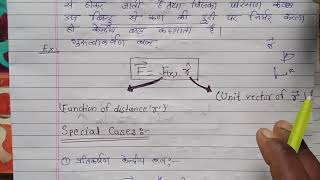 से होकर जाती है तथा जिसका परिमाण केवल
उस बिन्दु से कण की दूरी पर निर्भर करता
हो केन्द्रीय बल कहलाता है
Ex. गुरुत्वाकर्षण बल
F = F(r) r̂
(Function of distance 'r')
(Unit vector of r
Special Cases:-
① प्रतिकर्षण केन्द्रीय बल:-